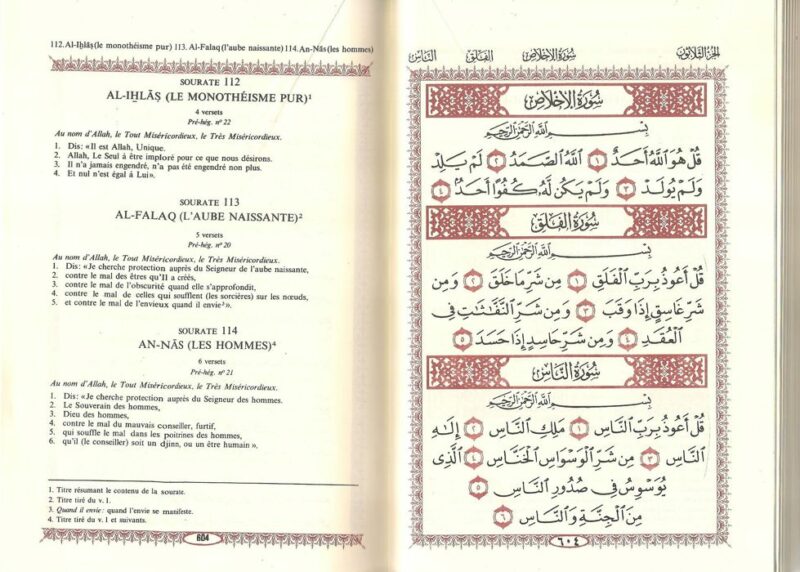 112. Al-Iẖlāṣ (le monothéisme pur) 113. Al-Falaq (l'aube naissante) 114. An-Nās (les hommes)
SOURATE 112
AL-IẖLĀṢ (LE MONOTHÉISME PUR)¹
4 versets
Pré-hég. nº 22
Au nom d'Allah, le Tout Miséricordieux, le Très Miséricordieux.
1. Dis: «Il est Allah, Unique.
2. Allah, Le Seul à être imploré pour ce que nous désirons.
3. Il n'a jamais engendré, n'a pas été engendré non plus.
4. Et nul n'est égal à Lui».
SOURATE 113
AL-FALAQ (L'AUBE NAISSANTE)²
5 versets
Pré-hég. nº 20
Au nom d'Allah, le Tout Miséricordieux, le Très Miséricordieux.
1. Dis: «Je cherche protection auprès du Seigneur de l'aube naissante,
2. contre le mal des êtres qu'Il a créés,
3. contre le mal de l'obscurité quand elle s'approfondit,
4. contre le mal de celles qui soufflent (les sorcières) sur les nœuds,
5. et contre le mal de l'envieux quand il envie³».
SOURATE 114
AN-NĀS (LES HOMMES)⁴
6 versets
Pré-hég. nº 21
Au nom d'Allah, le Tout Miséricordieux, le Très Miséricordieux.
1. Dis: «Je cherche protection auprès du Seigneur des hommes.
2. Le Souverain des hommes,
3. Dieu des hommes,
4. contre le mal du mauvais conseiller, furtif,
5. qui souffle le mal dans les poitrines des hommes,
6. qu'il (le conseiller) soit un djinn, ou un être humain».
1. Titre résumant le contenu de la sourate.
2. Titre tiré du v. 1.
3. Quand il envie: quand l'envie se manifeste.
4. Titre du v. 1 et suivants.
604
الجزء الثلاثون سورة الإخلاص الفلق الناس
سُورَةُ الإِخْلَاصِ
بِسْمِ اللَّهِ الرَّحْمَٰنِ الرَّحِيمِ
قُلْ هُوَ ٱللَّهُ أَحَدٌ ١ ٱللَّهُ ٱلصَّمَدُ ٢ لَمْ يَلِدْ
وَلَمْ يُولَدْ ٣ وَلَمْ يَكُن لَّهُۥ كُفُوًا أَحَدٌۢ ٤
سُورَةُ الفَلَقِ
بِسْمِ اللَّهِ الرَّحْمَٰنِ الرَّحِيمِ
قُلْ أَعُوذُ بِرَبِّ ٱلْفَلَقِ ١ مِن شَرِّ مَا خَلَقَ ٢ وَمِن
شَرِّ غَاسِقٍ إِذَا وَقَبَ ٣ وَمِن شَرِّ ٱلنَّفَّٰثَٰتِ فِى
ٱلْعُقَدِ ٤ وَمِن شَرِّ حَاسِدٍ إِذَا حَسَدَ ٥
سُورَةُ النَّاسِ
بِسْمِ اللَّهِ الرَّحْمَٰنِ الرَّحِيمِ
قُلْ أَعُوذُ بِرَبِّ ٱلنَّاسِ ١ مَلِكِ ٱلنَّاسِ ٢ إِلَٰهِ
ٱلنَّاسِ ٣ مِن شَرِّ ٱلْوَسْوَاسِ ٱلْخَنَّاسِ ٤ ٱلَّذِى
يُوَسْوِسُ فِى صُدُورِ ٱلنَّاسِ ٥
مِنَ ٱلْجِنَّةِ وَٱلنَّاسِ ٦
٦٠٤